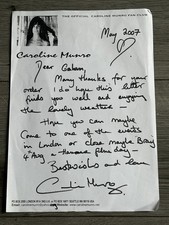 THE OFFICIAL CAROLINE MUNRO FAN CLUB
May 2007
Caroline Munro
Dear
Many thanks for your
order I do hope this letter
finds you well and enjoying
the lovely weather -
Hope you can maybe
come to one of the events
in London or close maybe Bray
4th Aug a Hammer films day -
Best wishes and love
Caroline Munro